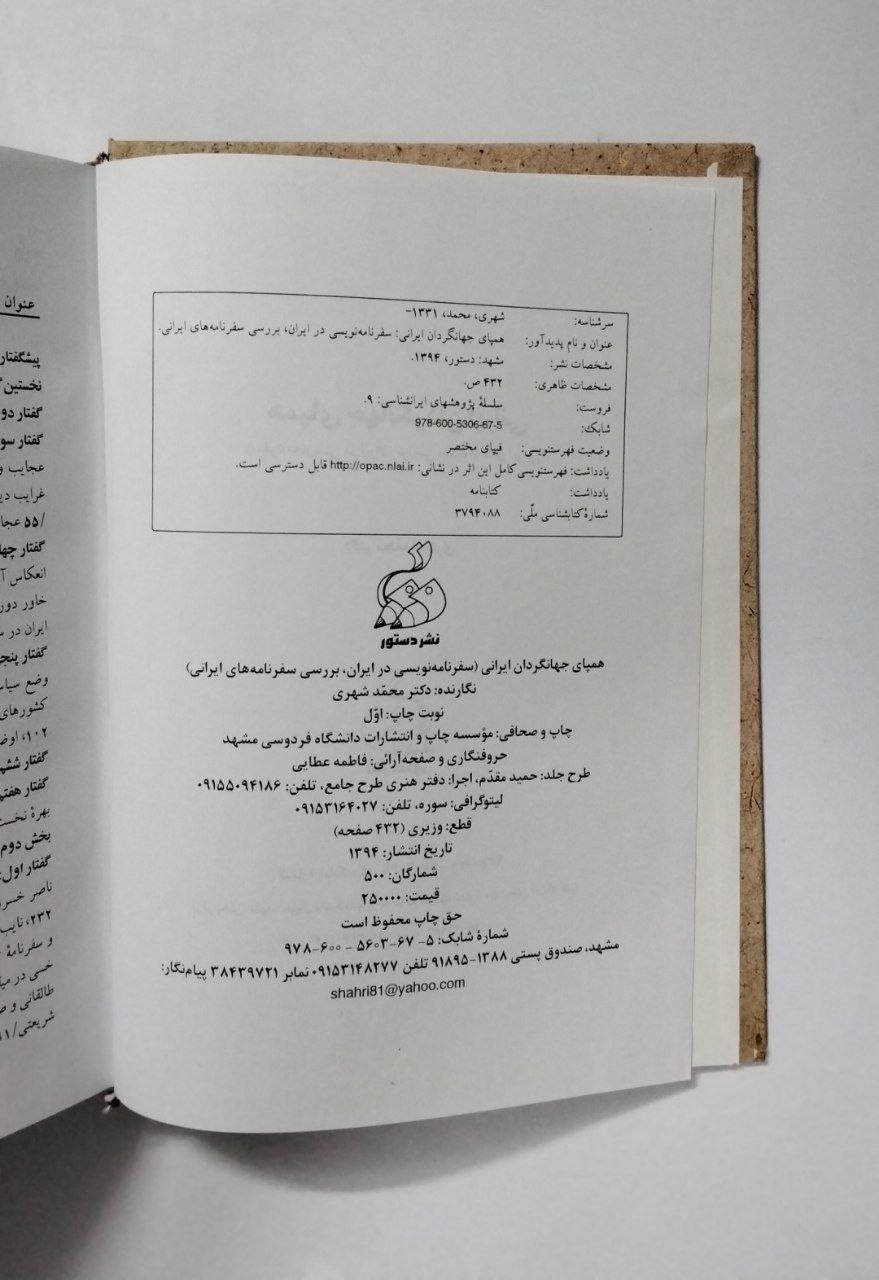 سرشناسه: شهری، محمد، ۱۳۳۱-
عنوان و نام پدیدآور: همپای جهانگردان ایرانی: سفرنامه‌نویسی در ایران، بررسی سفرنامه‌های ایرانی.
مشخصات نشر: مشهد: دستور، ۱۳۹۴.
مشخصات ظاهری: ۴۳۲ ص.
فروست: سلسلهٔ پژوهشهای ایرانشناسی: ۹.
شابک: 978-600-5306-67-5
وضعیت فهرستنویسی: فیپای مختصر
یادداشت: فهرستنویسی کامل این اثر در نشانی: http://opac.nlai.ir قابل دسترسی است.
یادداشت: کتابنامه
شمارهٔ کتابشناسی ملّی: ۳۷۹۴۰۸۸
نشر دستور
همپای جهانگردان ایرانی (سفرنامه‌نویسی در ایران، بررسی سفرنامه‌های ایرانی)
نگارنده: دکتر محمّد شهری
نوبت چاپ: اوّل
چاپ و صحافی: مؤسسه چاپ و انتشارات دانشگاه فردوسی مشهد
حروفنگاری و صفحه‌آرائی: فاطمه عطایی
طرح جلد: حمید مقدّم، اجرا: دفتر هنری طرح جامع، تلفن: ۰۹۱۵۵۰۹۴۱۸۶
لیتوگرافی: سوره، تلفن: ۰۹۱۵۳۱۶۴۰۲۷
قطع: وزیری (۴۳۲ صفحه)
تاریخ انتشار: ۱۳۹۴
شمارگان: ۵۰۰
قیمت: ۲۵۰۰۰۰
حق چاپ محفوظ است
شمارهٔ شابک: ۵- ۶۷-۵۶۰۳ - ۶۰۰-۹۷۸
مشهد، صندوق پستی ۱۳۸۸-۹۱۸۹۵ تلفن ۰۹۱۵۳۱۴۸۲۷۷ نمابر ۳۸۴۳۹۷۲۱ پیام‌نگار:
shahri81@yahoo.com
عنوان
پیشگفتار
نخستین
گفتار دو
گفتار سو
عجایب و
غرایب
۵۵/ عجا
گفتار چها
انعکاس آ
خاور دور
ایران در
گفتار پنج
وضع سیا
کشورهای
۱۰۲، اوض
گفتار شش
گفتار هفت
بهرهٔ نخست
بخش دوم
گفتار اول:
ناصر خسر
۲۳۲، نایب
و سفرنامهٔ
خسی در می
طالقانی و
شریعتی/